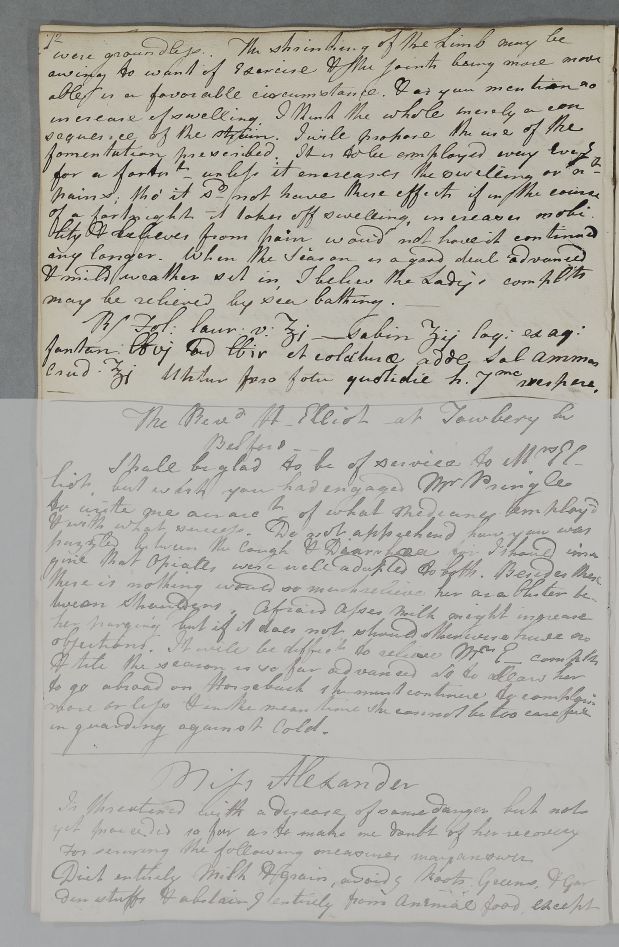 were groundless. The shrinking of the Limb may be
owing to want of Exercise & the joints being more move
able is a favorable circumstance. & as you mention no
increase of swelling, I think the whole merely a con
sequence of the strain. I will propose the use of the
fomentation prescribed. It is to be employed every
for a fortnt unless it encreases the swelling or
pains, tho' it sd not have these effects if in the course
of a fortnight it takes off swelling, increases mobi-
lity & relieves from pain would not have it continued
any longer. When the Season is a good deal advanced
& mild weather set in, I believe the Lady's complts
may be relieved by sea bathing.
Rx Fol: laur: v: ℥j — sabin ℥ij coq: ex aq:
fontan: lbvj ad lbiv et colaturæ adde Sal ammon
crud: ℥j Utatur pro fotu quotidie h. 7me vespere.
The Revd Mr Elliot at Towbery by
Belford
Shall be glad to be of service to Mrs El-
liot, but wish you had engaged Mr Pringle
to write me an acct of what Medicines employ'd
& with what success. Do not apprehend how you was
puzzled between the Cough & Diarrhæa for I should ima
gine that Opiates were well adapted to both. Besides these
there is nothing would so much relieve her as a blister be-
tween Shoulders. Afraid Asses Milk might increase
her purging but if it does not should otherwise have no
objections. It will be difft to relieve Mrs E complts
& till the season is so far advanced as to allow her
to go abroad on Horseback she must continue to complain
more or less & in the mean time she cannot be too careful
in guarding against Cold.
Miss Alexander
Is threatened with a disease of some danger but not
yet proceeded so far as to make me doubt of her recovery
For securing the following measures may answer
Diet entirely Milk & grain, avoidg Roots, Greens, & Gar
den stuffs & abstaing entirely from Animal food, except